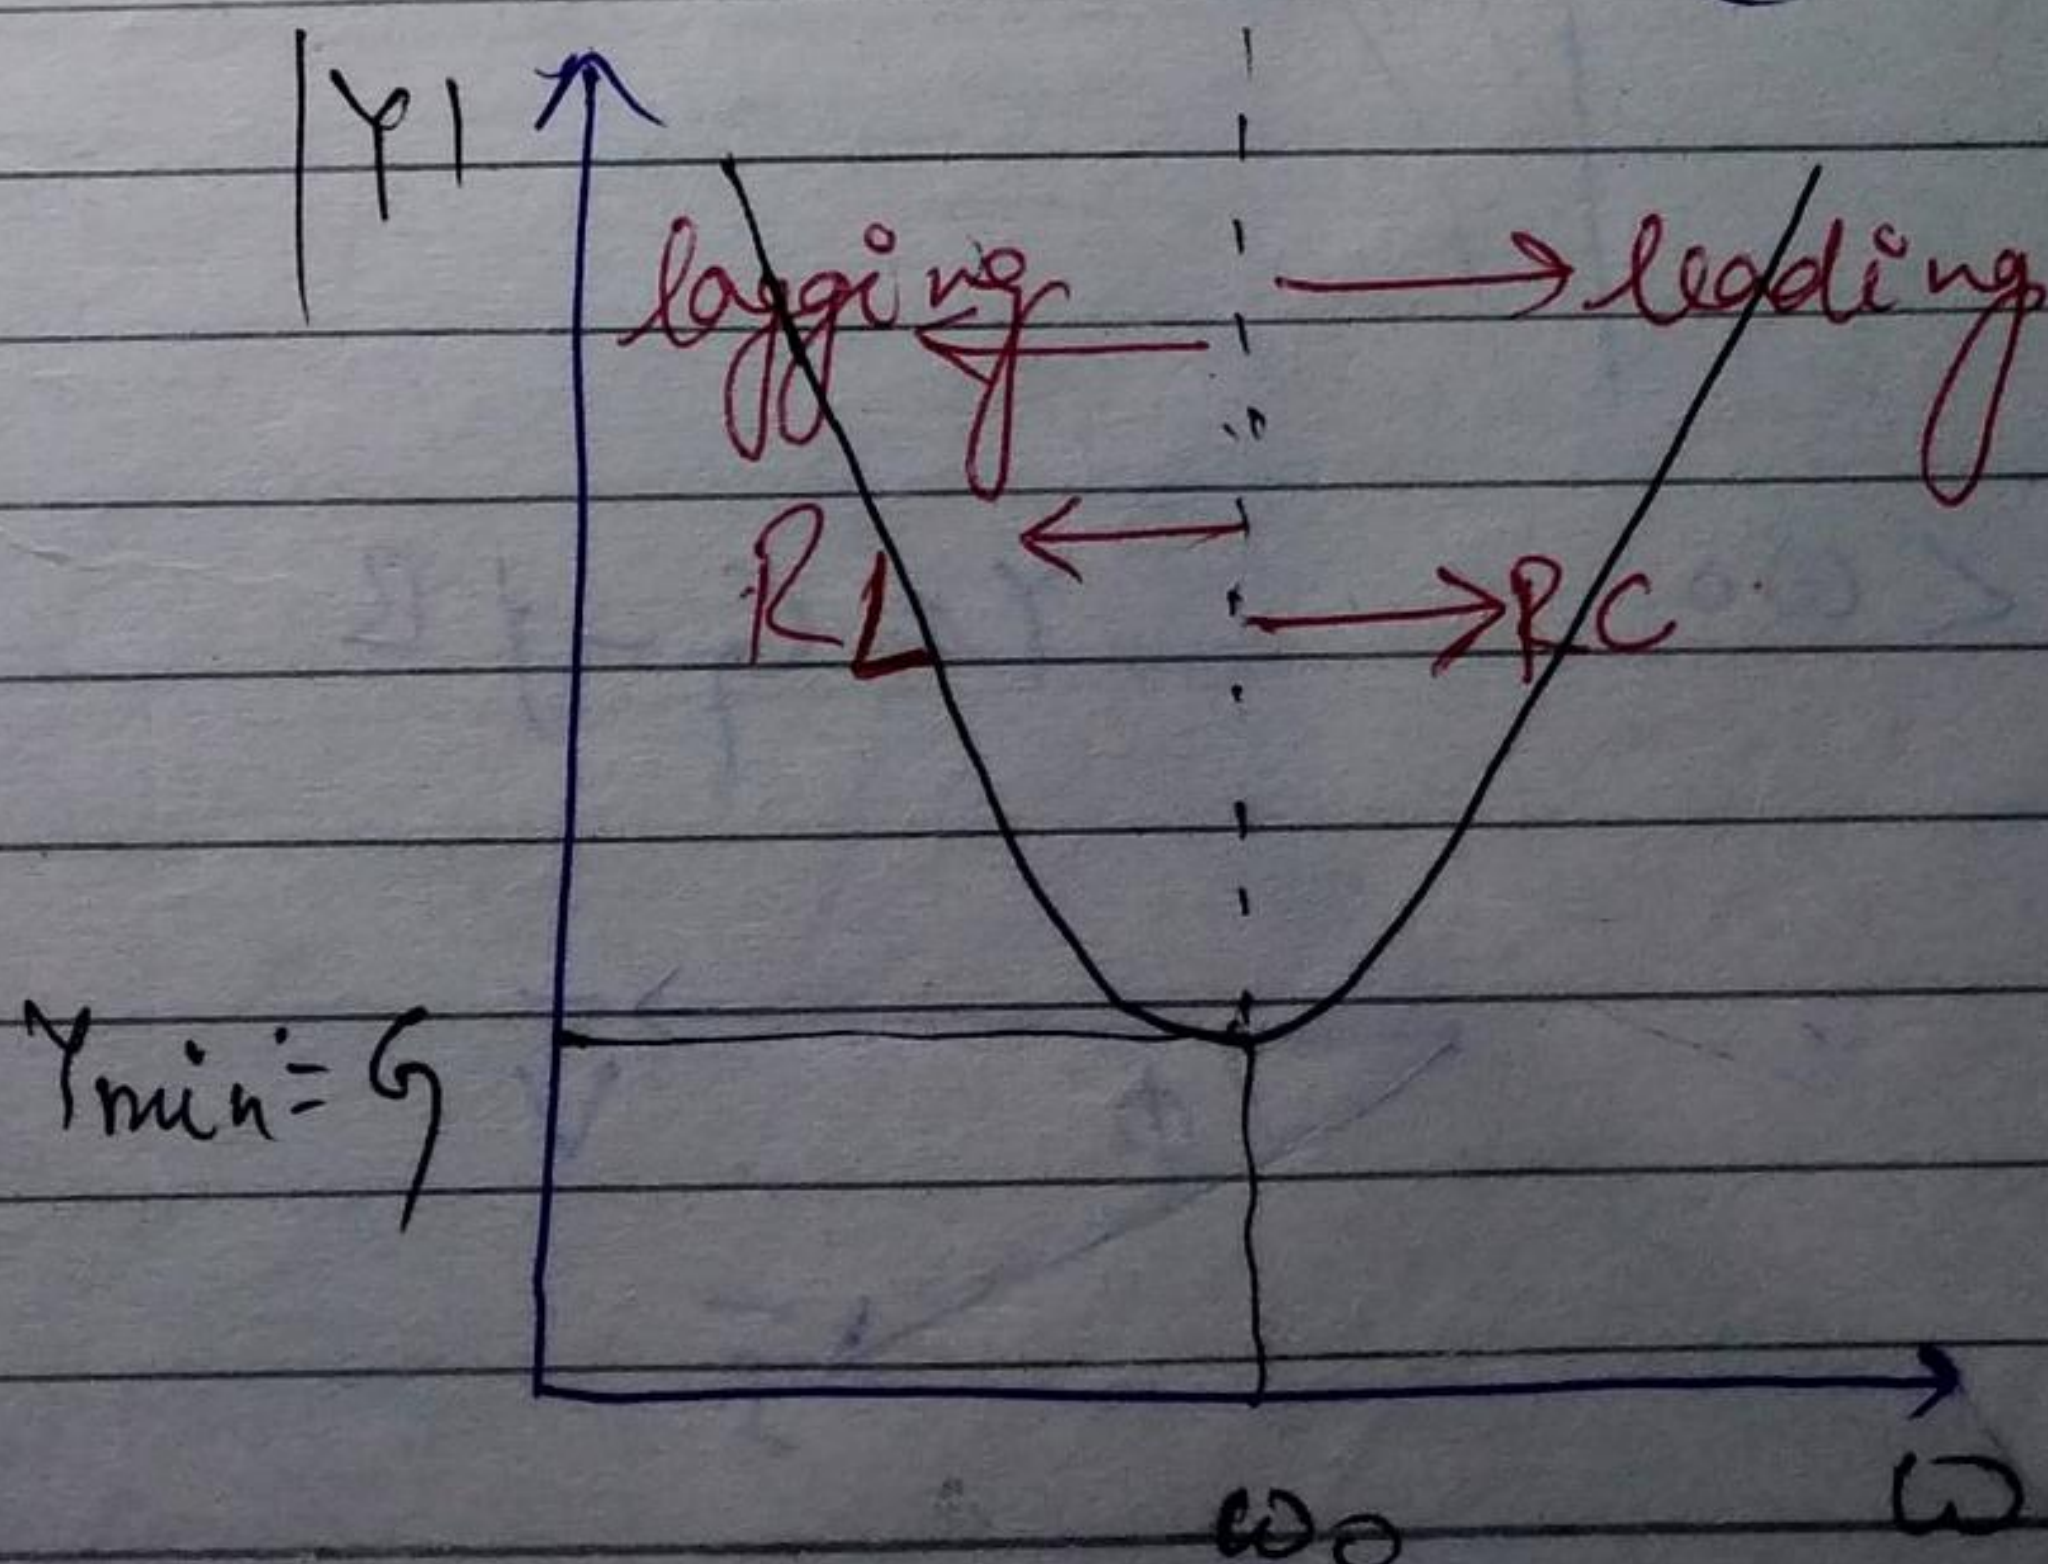 |Y|
lagging
leading
RL
RC
Ymin = G
ω
ω₀